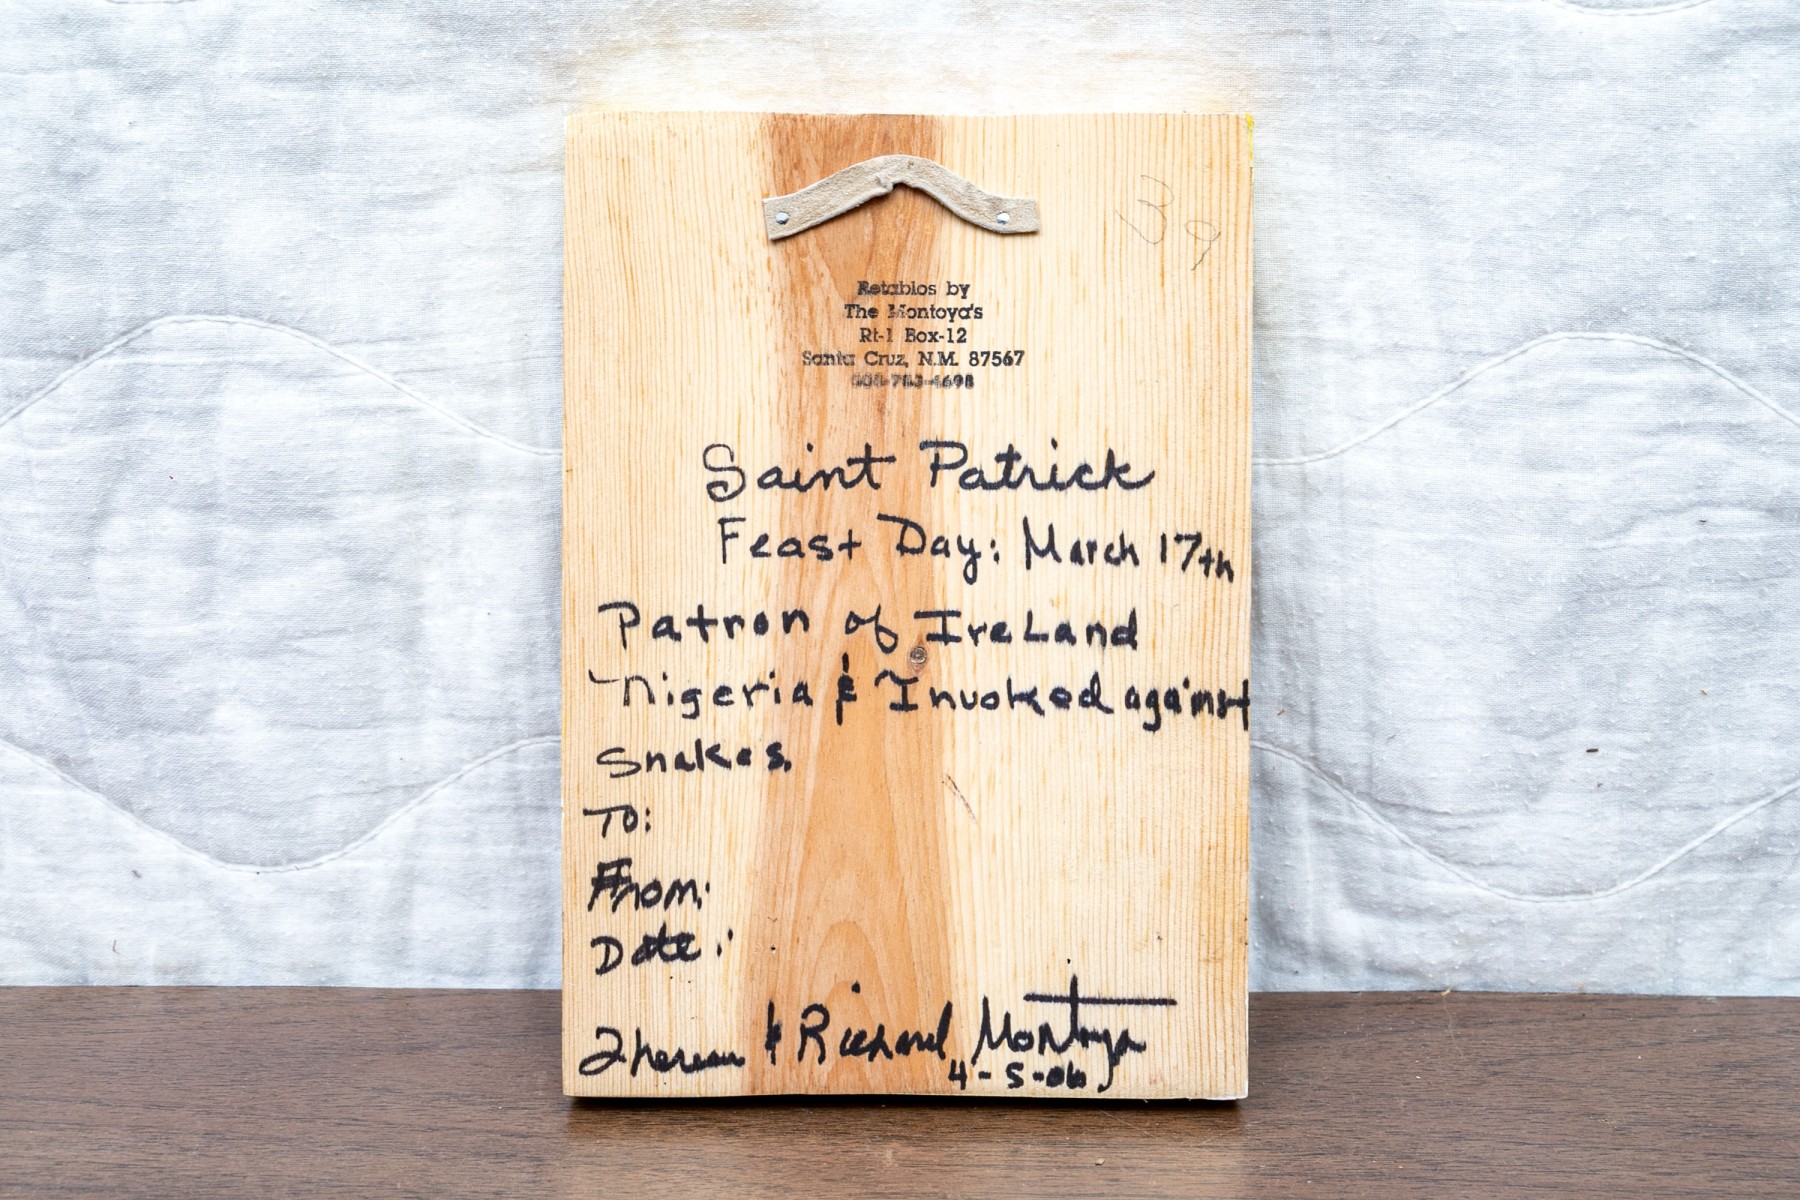 39
Retablos by
The Montoya's
Rt-1 Box-12
Santa Cruz, N.M. 87567
Saint Patrick
Feast Day: March 17th
Patron of Ireland
Nigeria & Invoked against
Snakes.
To:
From:
Date:
& Richard Montoya
4-5-06